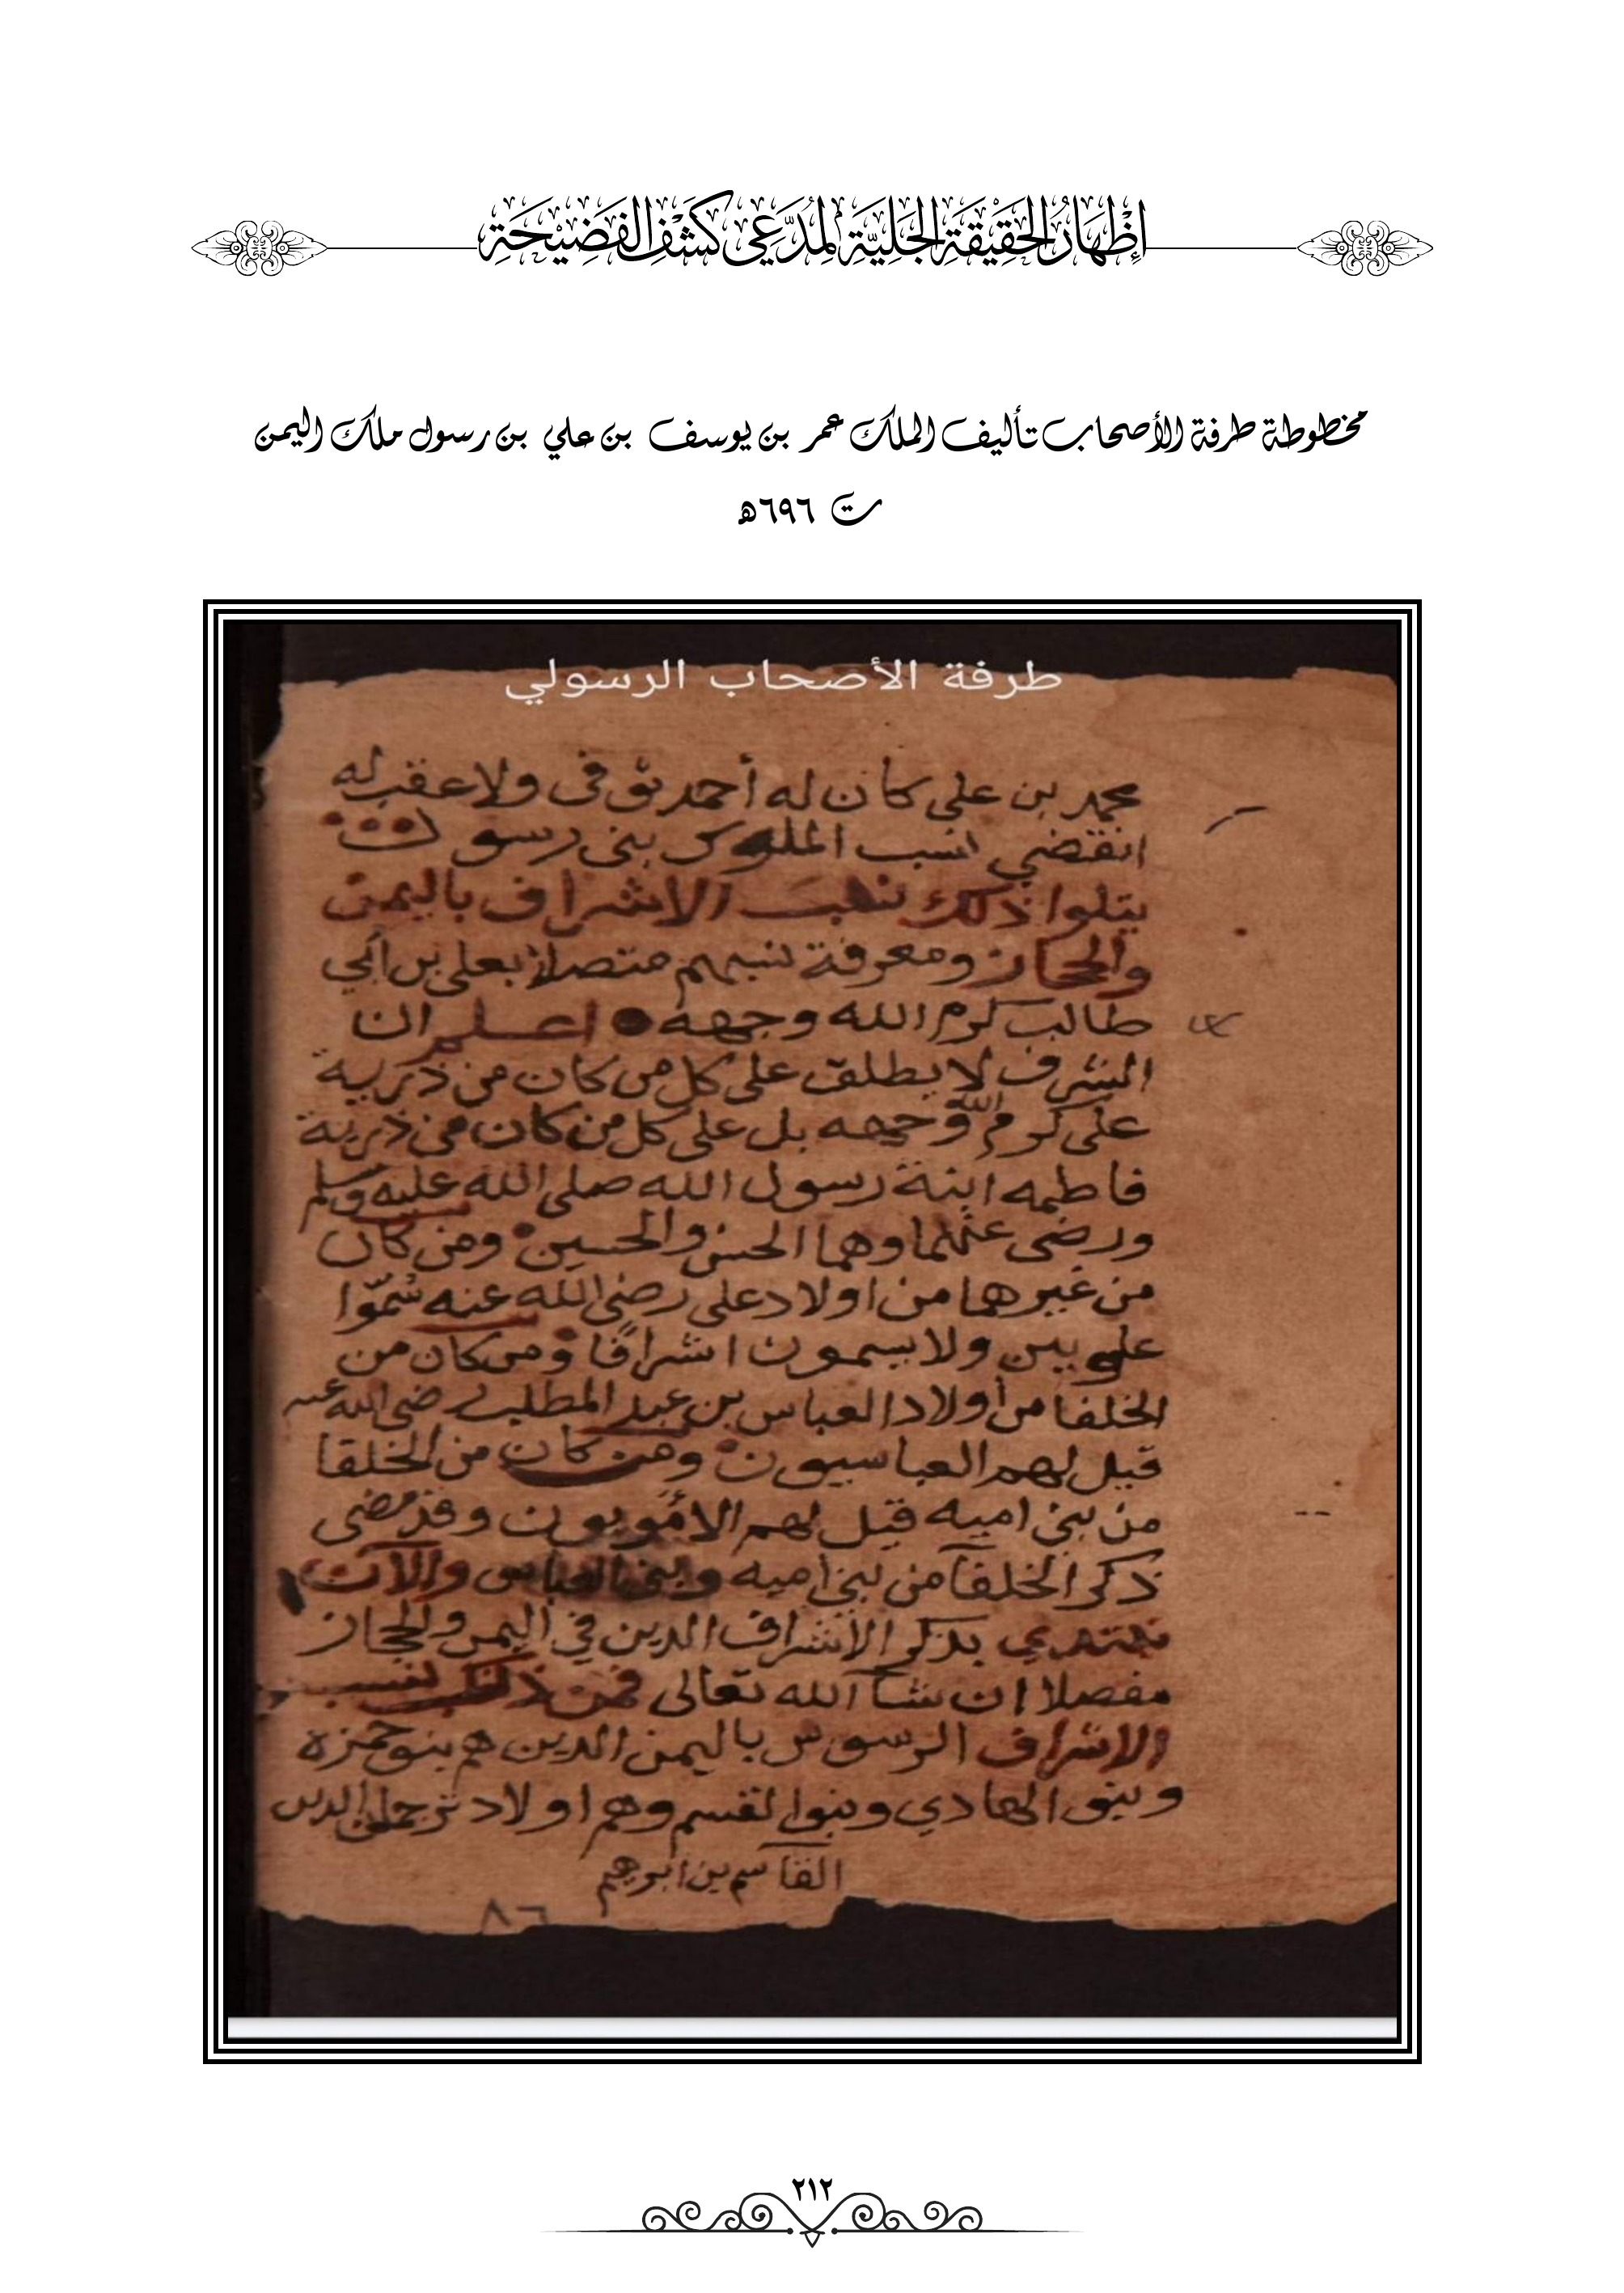 إِظْهَارُ الحَقِيْقَةِ الجَلِيَّةِ لِمُدَّعِي كَشْفِ الفَضِيْحَةِ
مخطوطة طرفة الأصحاب تأليف الملك عمر بن يوسف بن علي بن رسول ملك اليمن
ت ٦٩٦ه
طرفة الأصحاب الرسولي
محمد بن علي كان له أحمد توفى ولا عقب له
انقضي نسب الملوك بنى رسول
يتلوا ذلك نسب الاشراف باليمن
والحجاز ومعرفة نسبهم متصلا بعلى بن ابي
طالب كرم الله وجهه اعلم ان
الشرف لا يطلق على كل من كان من ذرية
على كرم الله وجهه بل على كل من كان من ذرية
فاطمه ابنة رسول الله صلى الله عليه وسلم
ورضى عنهما وهما الحسن والحسين ومن كان
من غيرهما من اولاد على رضى الله عنه سُمّوا
علويين ولا يسمون اشرافًا ومن كان من
الخلفا من أولاد العباس بن عبد المطلب رضى الله عنه
قيل لهم العباسيون ومن كان من الخلفا
من بنى اميه قيل لهم الأمويون وقد مضى
ذكر الخلفآ من بنى اميه وبنى العباس والآن
نبتدي بذكر الأشراف الذين في اليمن والحجاز
مفصلا ان شآ الله تعالى فمن ذلك نسب
الاشراف الرسوس باليمن الذين هم بنو حمزه
وبنو الهادي وبنوا لقسم وهم اولاد ترجمان الدين
القاسم بن ابرهيم
٨٦
٢١٢